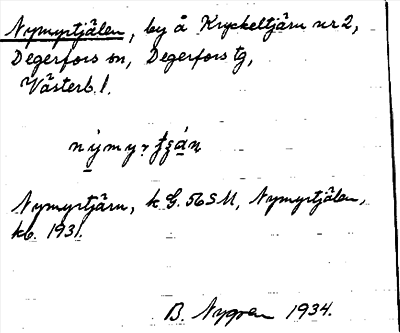 Nymyrtjälen, by å Kryckeltjärn nr 2,
Degerfors sn, Degerfors tg,
Västerb. l.
Nymyrtjärn, k G. 56 S M, Nymyrtjälen,
kb. 1931.
B. Nygren 1934.